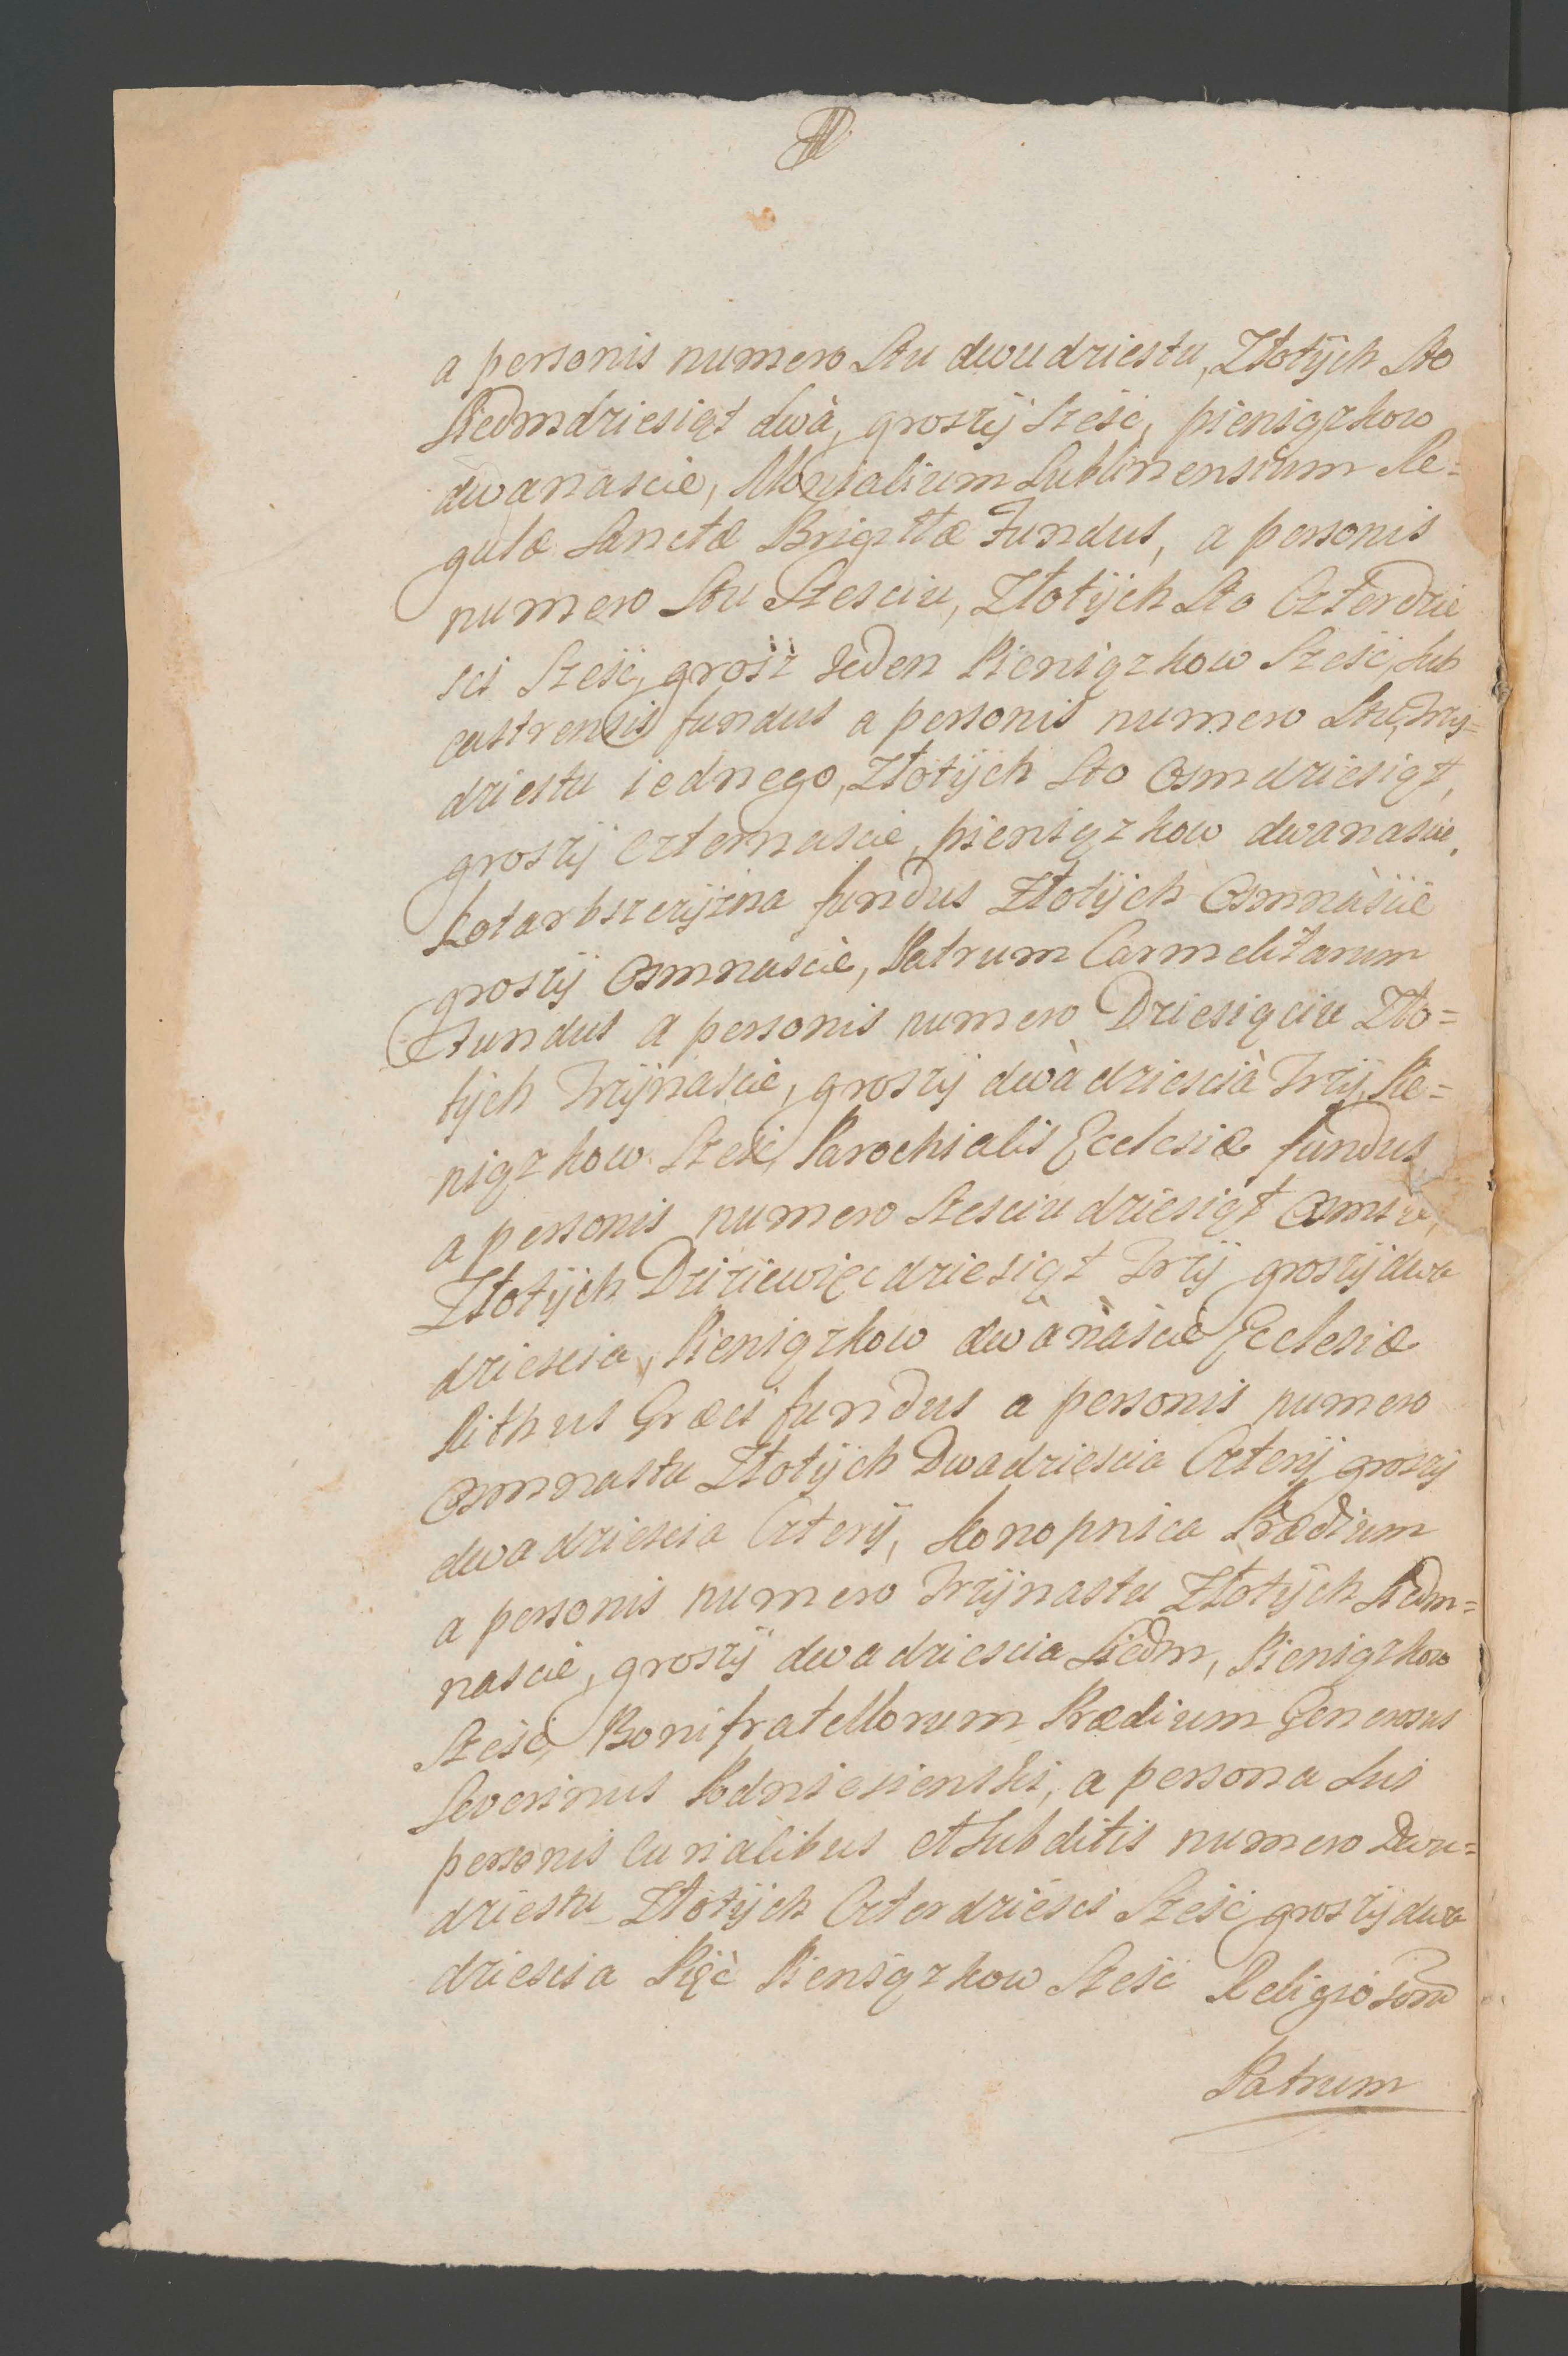 a personis numero Stu dwudziestu, Złotÿch Sto
Siedmdziesiąt dwà, groszÿ Szesc, pieniązkow
dwanascie, Monialium Lublinensium Re=
gulæ Sanctæ Brigittæ Fundus, a personis
numero Stu Szesciu, Złotÿch Sto Czterdzie
sci Szesć, grosz Jeden Pieniązkow Szesć, Sub
castrensis fundus a personis numero Stu Trzÿ=
dziestu iednego, Złotÿch Sto Osmdziesiąt,
groszÿ czternascie, pieniązkow dwanascie,
Kotarbszczÿzna fundus Złotÿch Osmnàscie
groszÿ Osmnascie, Patrum Carmelitarum
Fundus a personis numero Dziesiąciu Zło=
tÿch Trzÿnascie, groszÿ dwàdziescià Trzÿ, Pie=
niązkow Szesć, Parochialis Ecclesiæ fundus
a personis numero Szesciudziesiąt Osmiu,
Złotÿch Dziziewięcdziesiąt Trzÿ groszÿ dwa
dziescia, Pieniązkow dwànàscie Ecclesiæ
Rithus Græci fundus a personis numero
Osmnastu Złotÿch Dwadziescia Czterÿ groszÿ
dwadziescia Czterÿ, Konopnica Prædium
a personis numero Trzÿnastu Złotÿch Siedm=
nascie, groszÿ dwadziescia Siedm, Pieniązkow
Szesć, Bonifratellorum Prædium Generosus
Severinus Podniesienski, a persona Sui
personis Curialibus et Subditis numero Dwu=
dziestu Złotÿch Czterdziesci Szesć groszÿ dwa
dziescia Pięć Pieniązkow Szesć Religiosorum
Patrum